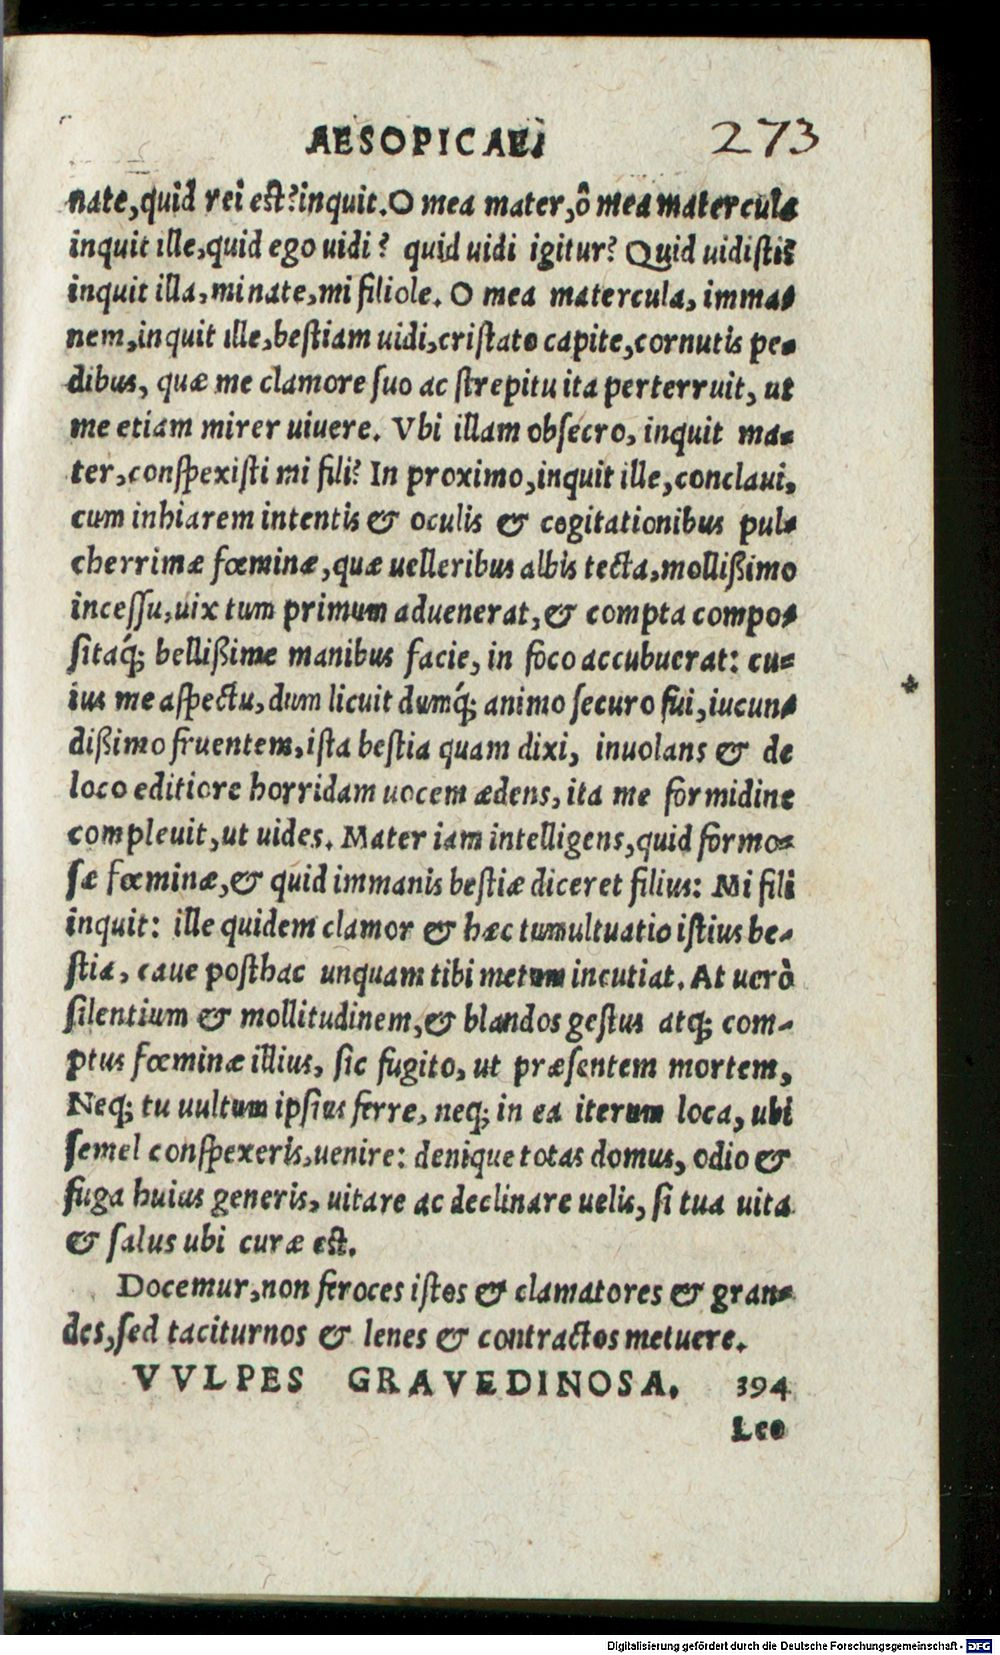 AESOPICAE. 273
nate,quid rei est?inquit.O mea mater,ô mea matercula
inquit ille,quid ego uidi? quid uidi igitur? Quid uidisti?
inquit illa,mi nate,mi filiole. O mea matercula, imma-
nem,inquit ille,bestiam uidi,cristato capite,cornutis pe-
dibus, quæ me clamore suo ac strepitu ita perterruit, ut
me etiam mirer uiuere. Vbi illam obsecro, inquit ma-
ter,conspexisti mi fili? In proximo,inquit ille,conclaui,
cum inhiarem intentis & oculis & cogitationibus pul-
cherrimæ fœminæ,quæ uelleribus albis tecta,mollißimo
incessu,uix tum primum aduenerat,& compta compo-
sitaq́; bellißime manibus facie, in foco accubuerat: cu-
ius me aspectu,dum licuit dumq́; animo securo fui,iucun-
dißimo fruentem,ista bestia quam dixi, inuolans & de
loco editiore horridam uocem ædens,ita me formidine
compleuit,ut uides. Mater iam intelligens,quid formo-
sæ fœminæ,& quid immanis bestiæ diceret filius: Mi fili
inquit: ille quidem clamor & hæc tumultuatio istius be-
stiæ, caue posthac unquam tibi metum incutiat. At uerò
silentium & mollitudinem,& blandos gestus atq; com-
ptus fœminæ illius, sic fugito, ut præsentem mortem,
Neq; tu uultum ipsius ferre, neq; in ea iterum loca, ubi
semel conspexeris,uenire: denique totas domus, odio &
fuga huius generis, uitare ac declinare uelis, si tua uita
& salus ubi curæ est.
Docemur,non feroces istos & clamatores & gran-
des,sed taciturnos & lenes & contractos metuere.
VVLPES GRAVEDINOSA. 394
Leo
Digitalisierung gefördert durch die Deutsche Forschungsgemeinschaft - DFG